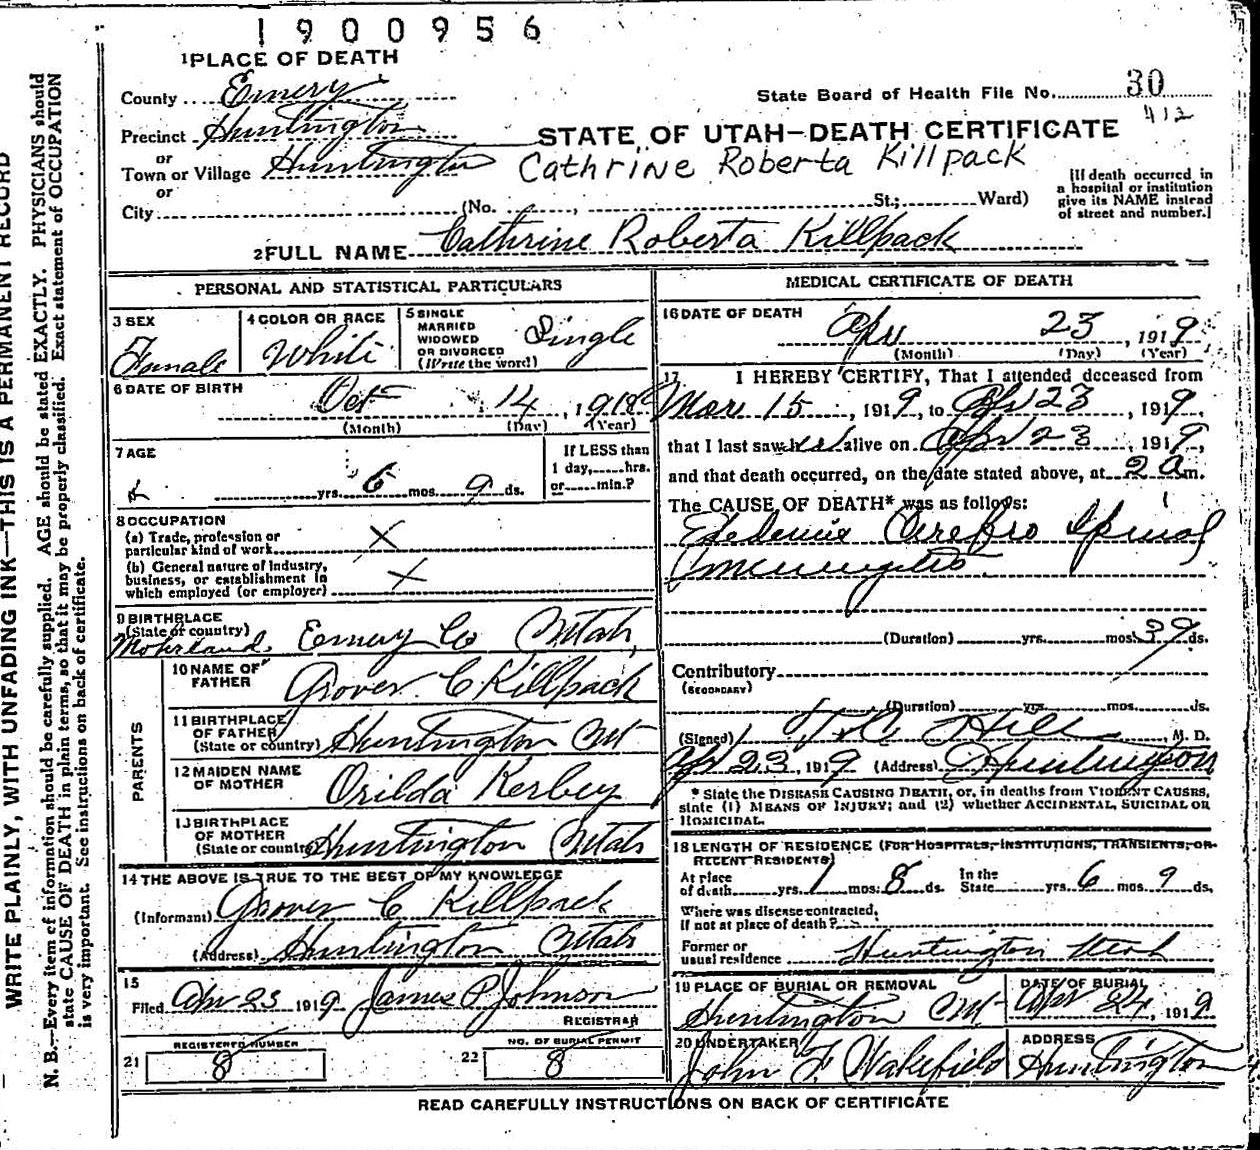 1900956
1 PLACE OF DEATH
County Emery
State Board of Health File No. 30
412
Precinct Huntington
STATE OF UTAH—DEATH CERTIFICATE
or
Town or Village Huntington
Cathrine Roberta Killpack
or
City (No. , St.; Ward)
[If death occurred in
a hospital or institution
give its NAME instead
of street and number.]
2 FULL NAME Cathrine Roberta Killpack
PERSONAL AND STATISTICAL PARTICULARS
3 SEX
Female
4 COLOR OR RACE
White
5 SINGLE
MARRIED
WIDOWED
OR DIVORCED
(Write the word)
Single
6 DATE OF BIRTH
Oct 14, 1918
(Month) (Day) (Year)
7 AGE
yrs. 6 mos. 9 ds.
If LESS than
1 day, hrs.
or min.?
8 OCCUPATION
(a) Trade, profession or
particular kind of work X
(b) General nature of industry,
business, or establishment in
which employed (or employer) X
9 BIRTHPLACE
(State or country)
Mohrland Emery Co Utah,
PARENTS
10 NAME OF
FATHER
Grover C Killpack
11 BIRTHPLACE
OF FATHER
(State or country) Huntington Ut
12 MAIDEN NAME
OF MOTHER
Orilda Kerbey
13 BIRTHPLACE
OF MOTHER
(State or country) Huntington Utah
14 THE ABOVE IS TRUE TO THE BEST OF MY KNOWLEDGE
(Informant) Grover C Killpack
(Address) Huntington Utah
15
Filed Apr 23 1919 James P Johnson
REGISTRAR
21 REGISTERED NUMBER
8
22 NO. OF BURIAL PERMIT
8
MEDICAL CERTIFICATE OF DEATH
16 DATE OF DEATH
Apr 23, 1919
(Month) (Day) (Year)
17 I HEREBY CERTIFY, That I attended deceased from
Mar 15, 1919, to Apr 23, 1919,
that I last saw her alive on Apr 23, 1919,
and that death occurred, on the date stated above, at 2 a m.
The CAUSE OF DEATH* was as follows:
Epidemic Cerebro Spinal
meningitis
(Duration) yrs. mos. 39 ds.
Contributory
(SECONDARY)
(Duration) yrs. mos. ds.
(Signed) T. C. Hill, M. D.
Apr 23, 1919 (Address) Huntington
* State the DISEASE CAUSING DEATH, or, in deaths from VIOLENT CAUSES,
state (1) MEANS OF INJURY; and (2) whether ACCIDENTAL, SUICIDAL OR
HOMICIDAL.
18 LENGTH OF RESIDENCE (FOR HOSPITALS, INSTITUTIONS, TRANSIENTS, OR
RECENT RESIDENTS)
At place
of death yrs. 1 mos. 8 ds.
In the
State yrs. 6 mos 9 ds.
Where was disease contracted,
if not at place of death?
Former or
usual residence Huntington Utah
19 PLACE OF BURIAL OR REMOVAL
Huntington Ut
DATE OF BURIAL
Apr 24, 1919
20 UNDERTAKER
John F. Wakefield
ADDRESS
Huntington
READ CAREFULLY INSTRUCTIONS ON BACK OF CERTIFICATE
WRITE PLAINLY, WITH UNFADING INK—THIS IS A PERMANENT RECORD
N. B.—Every item of information should be carefully supplied. AGE should be stated EXACTLY. PHYSICIANS should
state CAUSE OF DEATH in plain terms, so that it may be properly classified. Exact statement of OCCUPATION
is very important. See instructions on back of certificate.